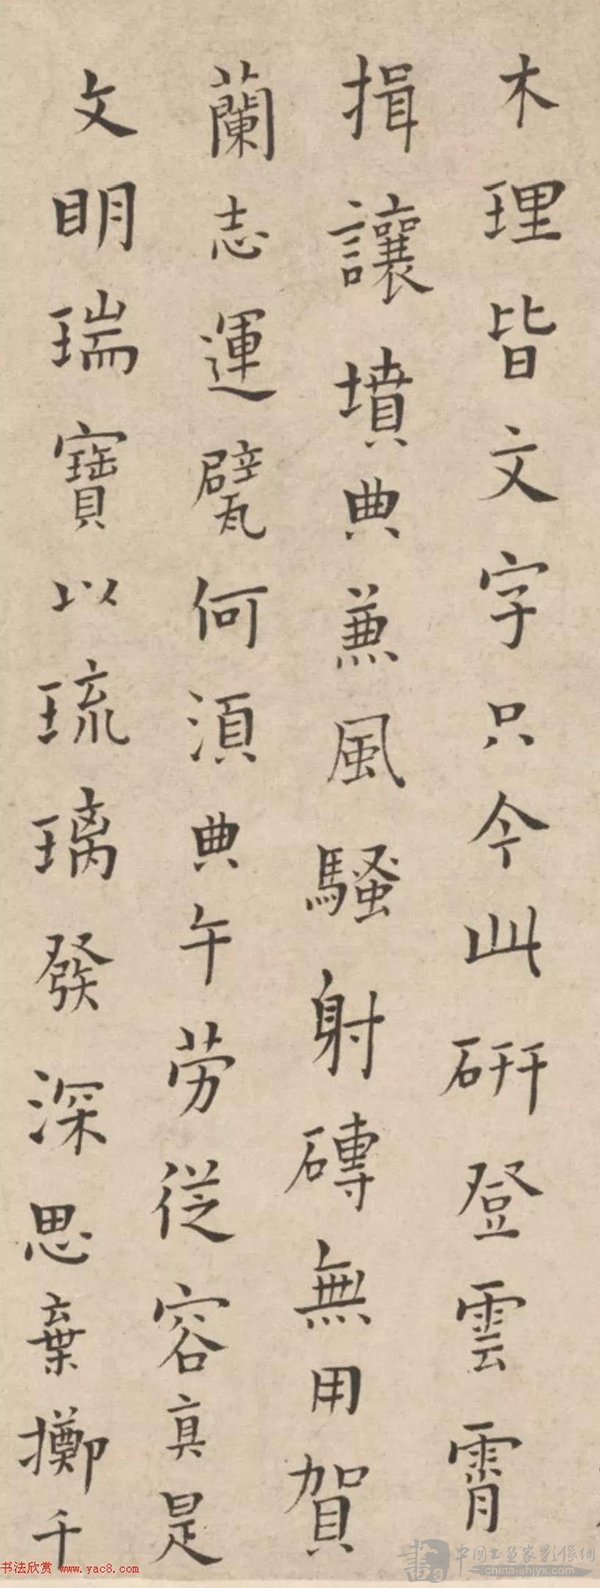 木理皆文字只今此硏登雲霄
揖讓墳典兼風騷射磚無用賀
蘭志運甓何須典午劳從容真是
文明瑞寶以琉璃發深思棄擲千
书法欣赏 www.yac8.com
中国书画家影像网
china-shjyx.com